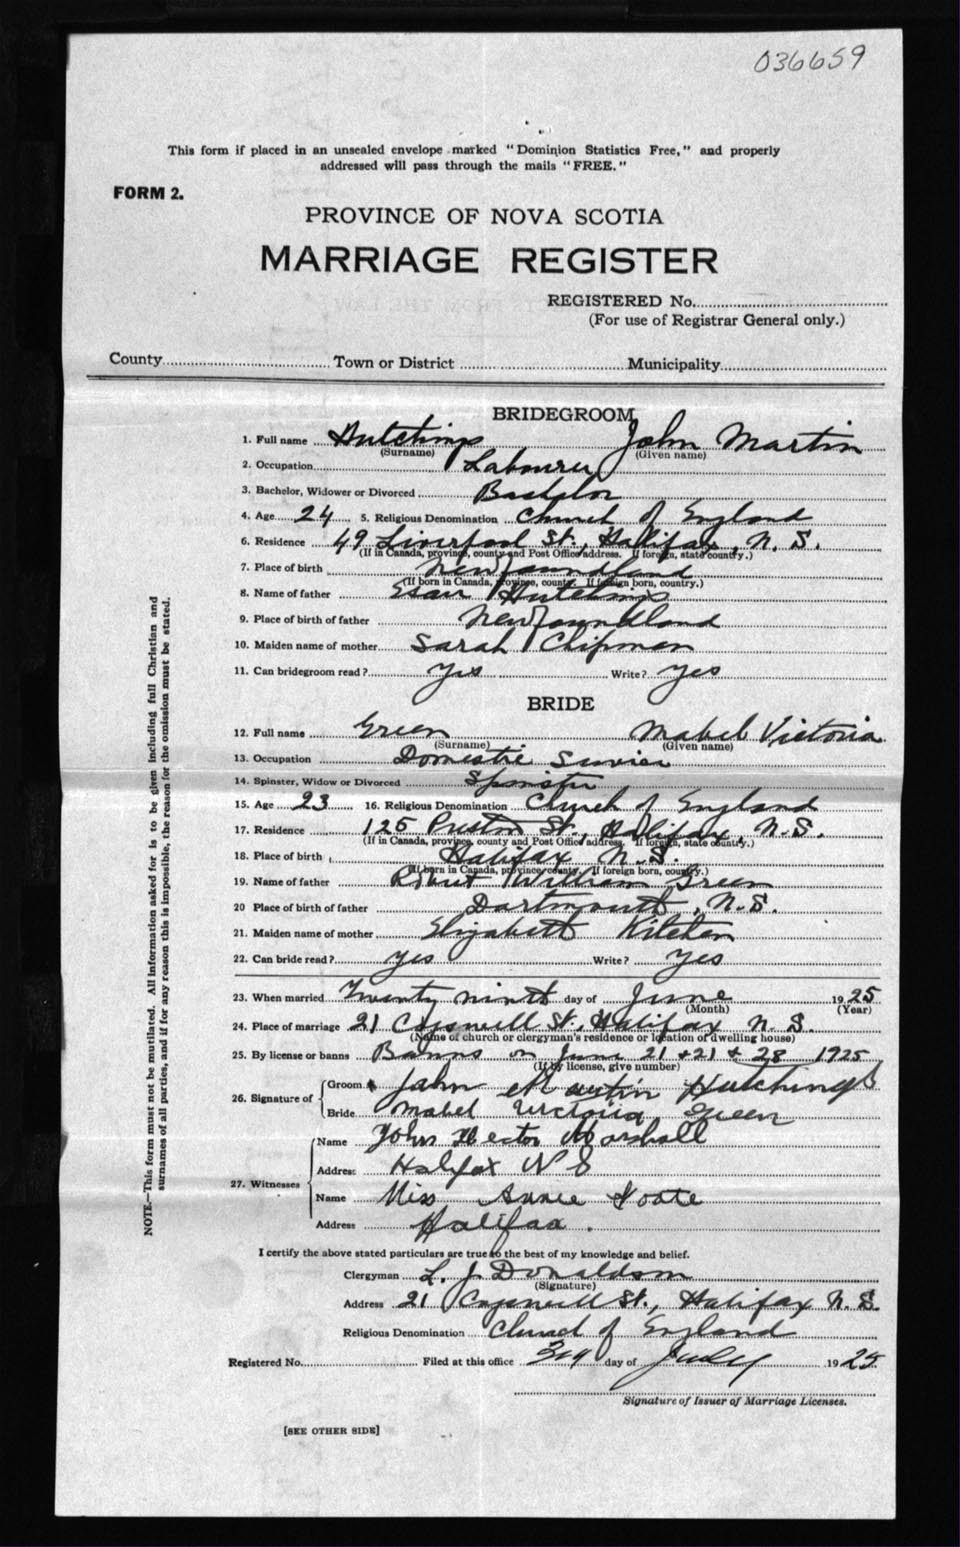 036659
This form if placed in an unsealed envelope marked "Dominion Statistics Free," and properly
addressed will pass through the mails "FREE."
FORM 2.
PROVINCE OF NOVA SCOTIA
MARRIAGE REGISTER
REGISTERED No.
(For use of Registrar General only.)
County Town or District Municipality
BRIDEGROOM
1. Full name Hutchings John Martin
(Surname) (Given name)
2. Occupation Labourer
3. Bachelor, Widower or Divorced Bachelor
4. Age 24 5. Religious Denomination Church of England
6. Residence 49 Liverpool St., Halifax, N. S.
(If in Canada, province, county and Post Office address. If foreign, state country.)
7. Place of birth Newfoundland
(If born in Canada, province, county. If foreign born, country.)
8. Name of father Esau Hutchings
9. Place of birth of father Newfoundland
10. Maiden name of mother Sarah Chipman
11. Can bridegroom read? Yes Write? Yes
BRIDE
12. Full name Green Mabel Victoria
(Surname) (Given name)
13. Occupation Domestic Service
14. Spinster, Widow or Divorced Spinster
15. Age 23 16. Religious Denomination Church of England
17. Residence 125 Preston St., Halifax, N.S.
(If in Canada, province, county and Post Office address. If foreign, state country.)
18. Place of birth Halifax N.S.
(If born in Canada, province, county. If foreign born, country.)
19. Name of father Robert William Green
20 Place of birth of father Dartmouth, N.S.
21. Maiden name of mother Elizabeth Kitchen
22. Can bride read? Yes Write? Yes
23. When married Twenty ninth day of June 1925
(Month) (Year)
24. Place of marriage 21 Cogswell St., Halifax N. S.
(Name of church or clergyman's residence or location of dwelling house)
25. By license or banns Banns on June 21 + 21 + 28 1925
(If by license, give number)
26. Signature of
Groom John Martin Hutchings
Bride Mabel Victoria Green
27. Witnesses
Name John Hector Marshall
Address Halifax N S
Name Miss Annie
Address Halifax.
I certify the above stated particulars are true to the best of my knowledge and belief.
Clergyman L. J. Donaldson
(Signature)
Address 21 Cogswell St., Halifax N. S.
Religious Denomination Church of England
Registered No. Filed at this office 3rd day of July 1925
Signature of Issuer of Marriage Licenses.
[SEE OTHER SIDE]
NOTE—This form must not be mutilated. All information asked for is to be given including full Christian and
surnames of all parties, and if for any reason this is impossible, the reason for the omission must be stated.